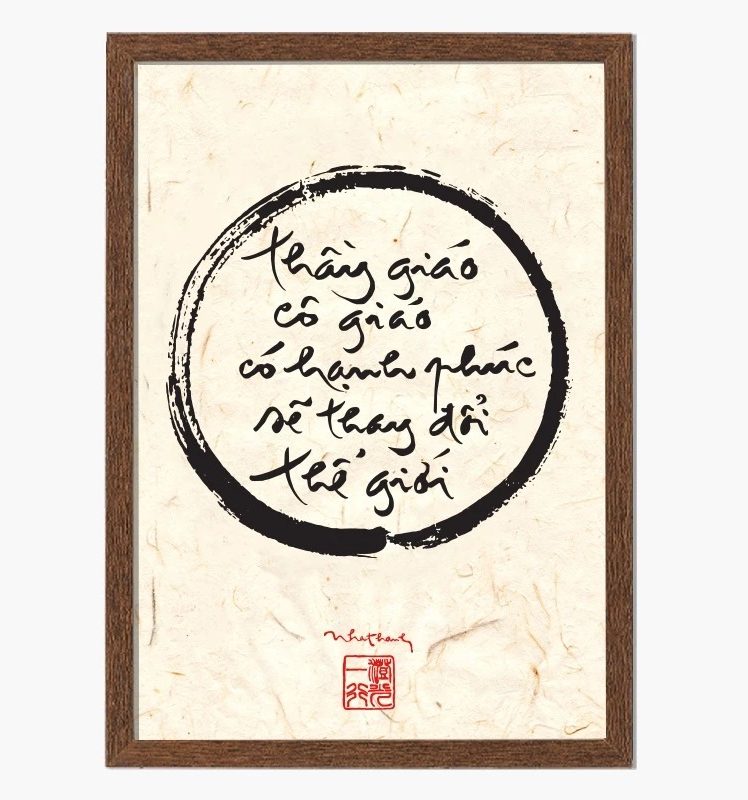 thầy giáo
cô giáo
có hạnh phúc
sẽ thay đổi
thế giới
nhathanh
一行